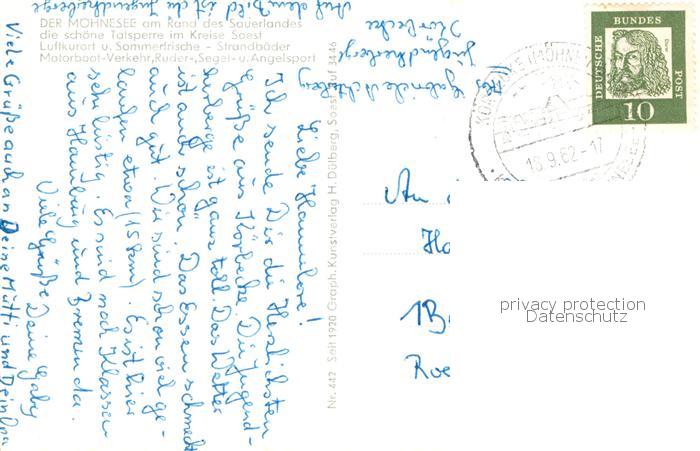 DER MÖHNESEE am Rand des Sauerlandes
die schöne Talsperre im Kreise Soest
Luftkurort u. Sommerfrische - Strandbäder
Motorboot-Verkehr, Ruder-, Segel- u. Angelsport
Auf dem Bild ist die Jugendherberge
Abs. Gabriele
Jugendherberge
Körbecke
Liebe Hannelore!
Ich sende Dir die Herzlichsten
Grüße aus Körbecke. Die Jugend-
herberge ist ganz toll. Das Wetter
ist auch schön. Das Essen schmeckt
auch gut. Wir sind schon viel ge-
laufen etwa (15 km). Es ist hier
sehr lustig. Es sind noch Klassen
aus Hamburg und Bremen da.
Viele Grüße Deine Gaby
Viele Grüße auch an Deine Mutti und Dein Pa
Nr. 442 Seit 1920 Graph. Kunstverlag H. Dülberg, Soest, Ruf 3446
DEUTSCHE BUNDES POST
Dürer
10
18.9.62-17
An
Ha
1B
Roe
privacy protection
Datenschutz